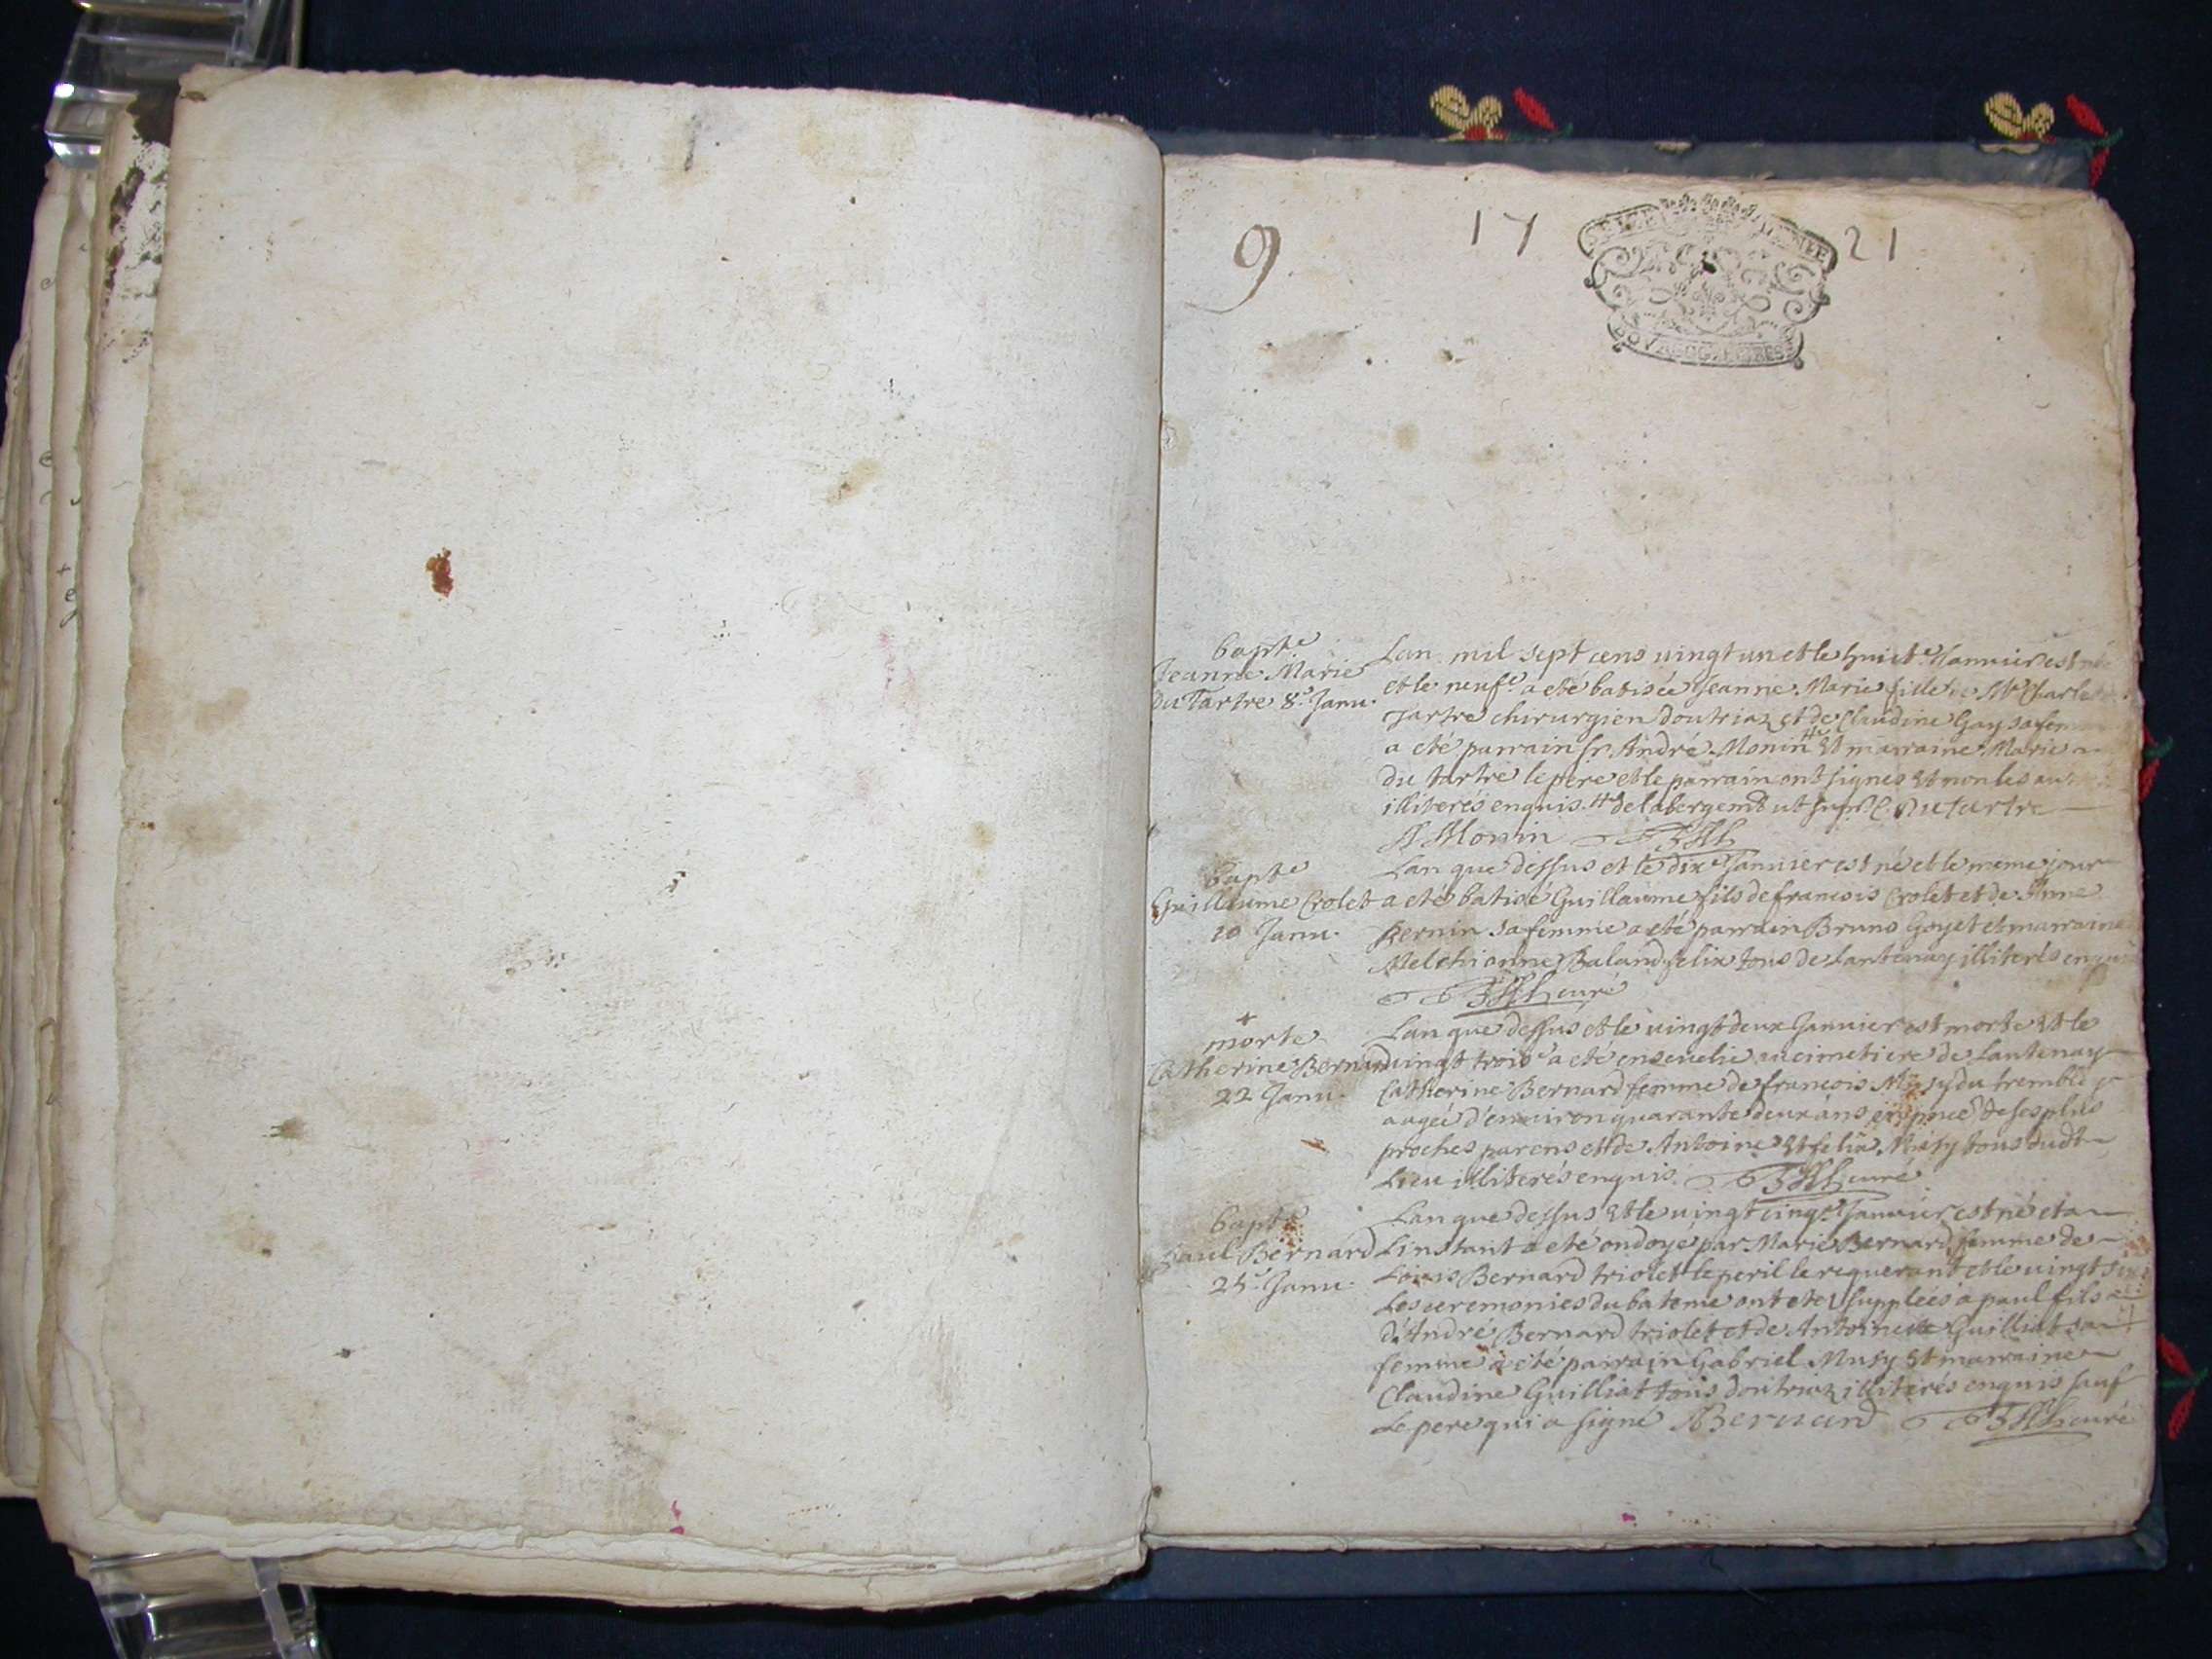 9 17 21
bapte
Jeanne Marie
Du Tartre 8e Janu.
Lan mil sept cens vingt un et le huicte Janvier est née
et le neufe a eté batisée Jeanne Marie fille de Mr Charle
Tartre chirurgien doutriaz et de Claudine Gay sa fem
a eté parrain sr. André Monin # et marraine Marie
du tartre le pere et le parrain ont signes et non les au
illiterés enquis. # de labergemt ut supr. C. Dutartre
A Monin
bapte
Guillaume Crolet
10 Janu.
Lan que dessus et le dixe Janvier est né et le meme jour
a eté batisé Guillaume fils de francois Crolet et de Anne
Bernin sa femme a eté parrain Bruno Goyet et marraine
Melchionne Baland felix tous de Lantenay illiterés enquis
curé
+
morte
Catherine Bernard
22 Janu.
Lan que dessus et le vingt deux Janvier est morte et le
vingt troise a eté ensevelie au cimetiere de Lantenay
Catherine Bernard femme de francois du tremblé
aagée d'environ quarante deux ans en pnce de ses plus
proches parens et de Antoine et felix tous dudt
Lieu illiterés enquis. curé
bapte
Paul Bernard
25e Janu.
Lan que dessus et le vingt cinqe Janvier est né et a
Linstant a eté ondoyé par Marie Bernard femme de
Louis Bernard triolet le peril le requerant et le vingt six
Les ceremonies du bateme ont eté supplées a paul fils
d'André Bernard triolet et de Antoinette Guilliat sa
femme a eté parrain Gabriel Musy et marraine
Claudine Guilliat tous doutriaz illiterés enquis sauf
Le pere qui a signé ABernard curé